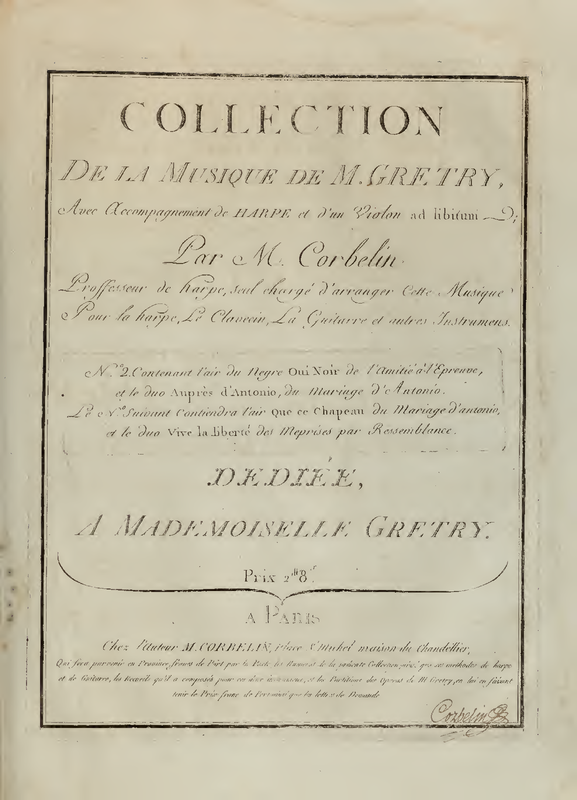 COLLECTION
DE LA MUSIQUE DE M. GRETRY,
Avec Accompagnement de HARPE et d'un Violon ad libitum
Par M. Corbelin
Proffesseur de harpe, seul chargé d'arranger Cette Musique
Pour la harpe, Le Clavecin, La Guitarre et autres Instrumens.
N.º 2. Contenant l'air du Negre Oui Noir de l'Amitié à l'Epreuve,
et le duo Auprès d'Antonio, du Mariage d'Antonio.
Le N.º Suivant Contiendra l'air Que ce Chapeau du Mariage d'antonio,
et le duo Vive la liberté des Meprises par Ressemblance.
DEDIÉE,
A MADEMOISELLE GRETRY.
Prix 2# 8s
A PARIS
Chez l'Auteur M. CORBELIN, Place St Michel maison du Chandellier,
Qui fera parvenir en Province, francs de Port par la Poste, les Numeros de la présente Collection, ainsi que ses méthodes de harpe
et de Guitarre, les Recueils qu'il a composés pour ces deux instrumens, et les Partitions des Operas de M. Gretry, en lui en faisant
tenir le Prix franc de Port ainsi que la lettre de Demande
Corbelin